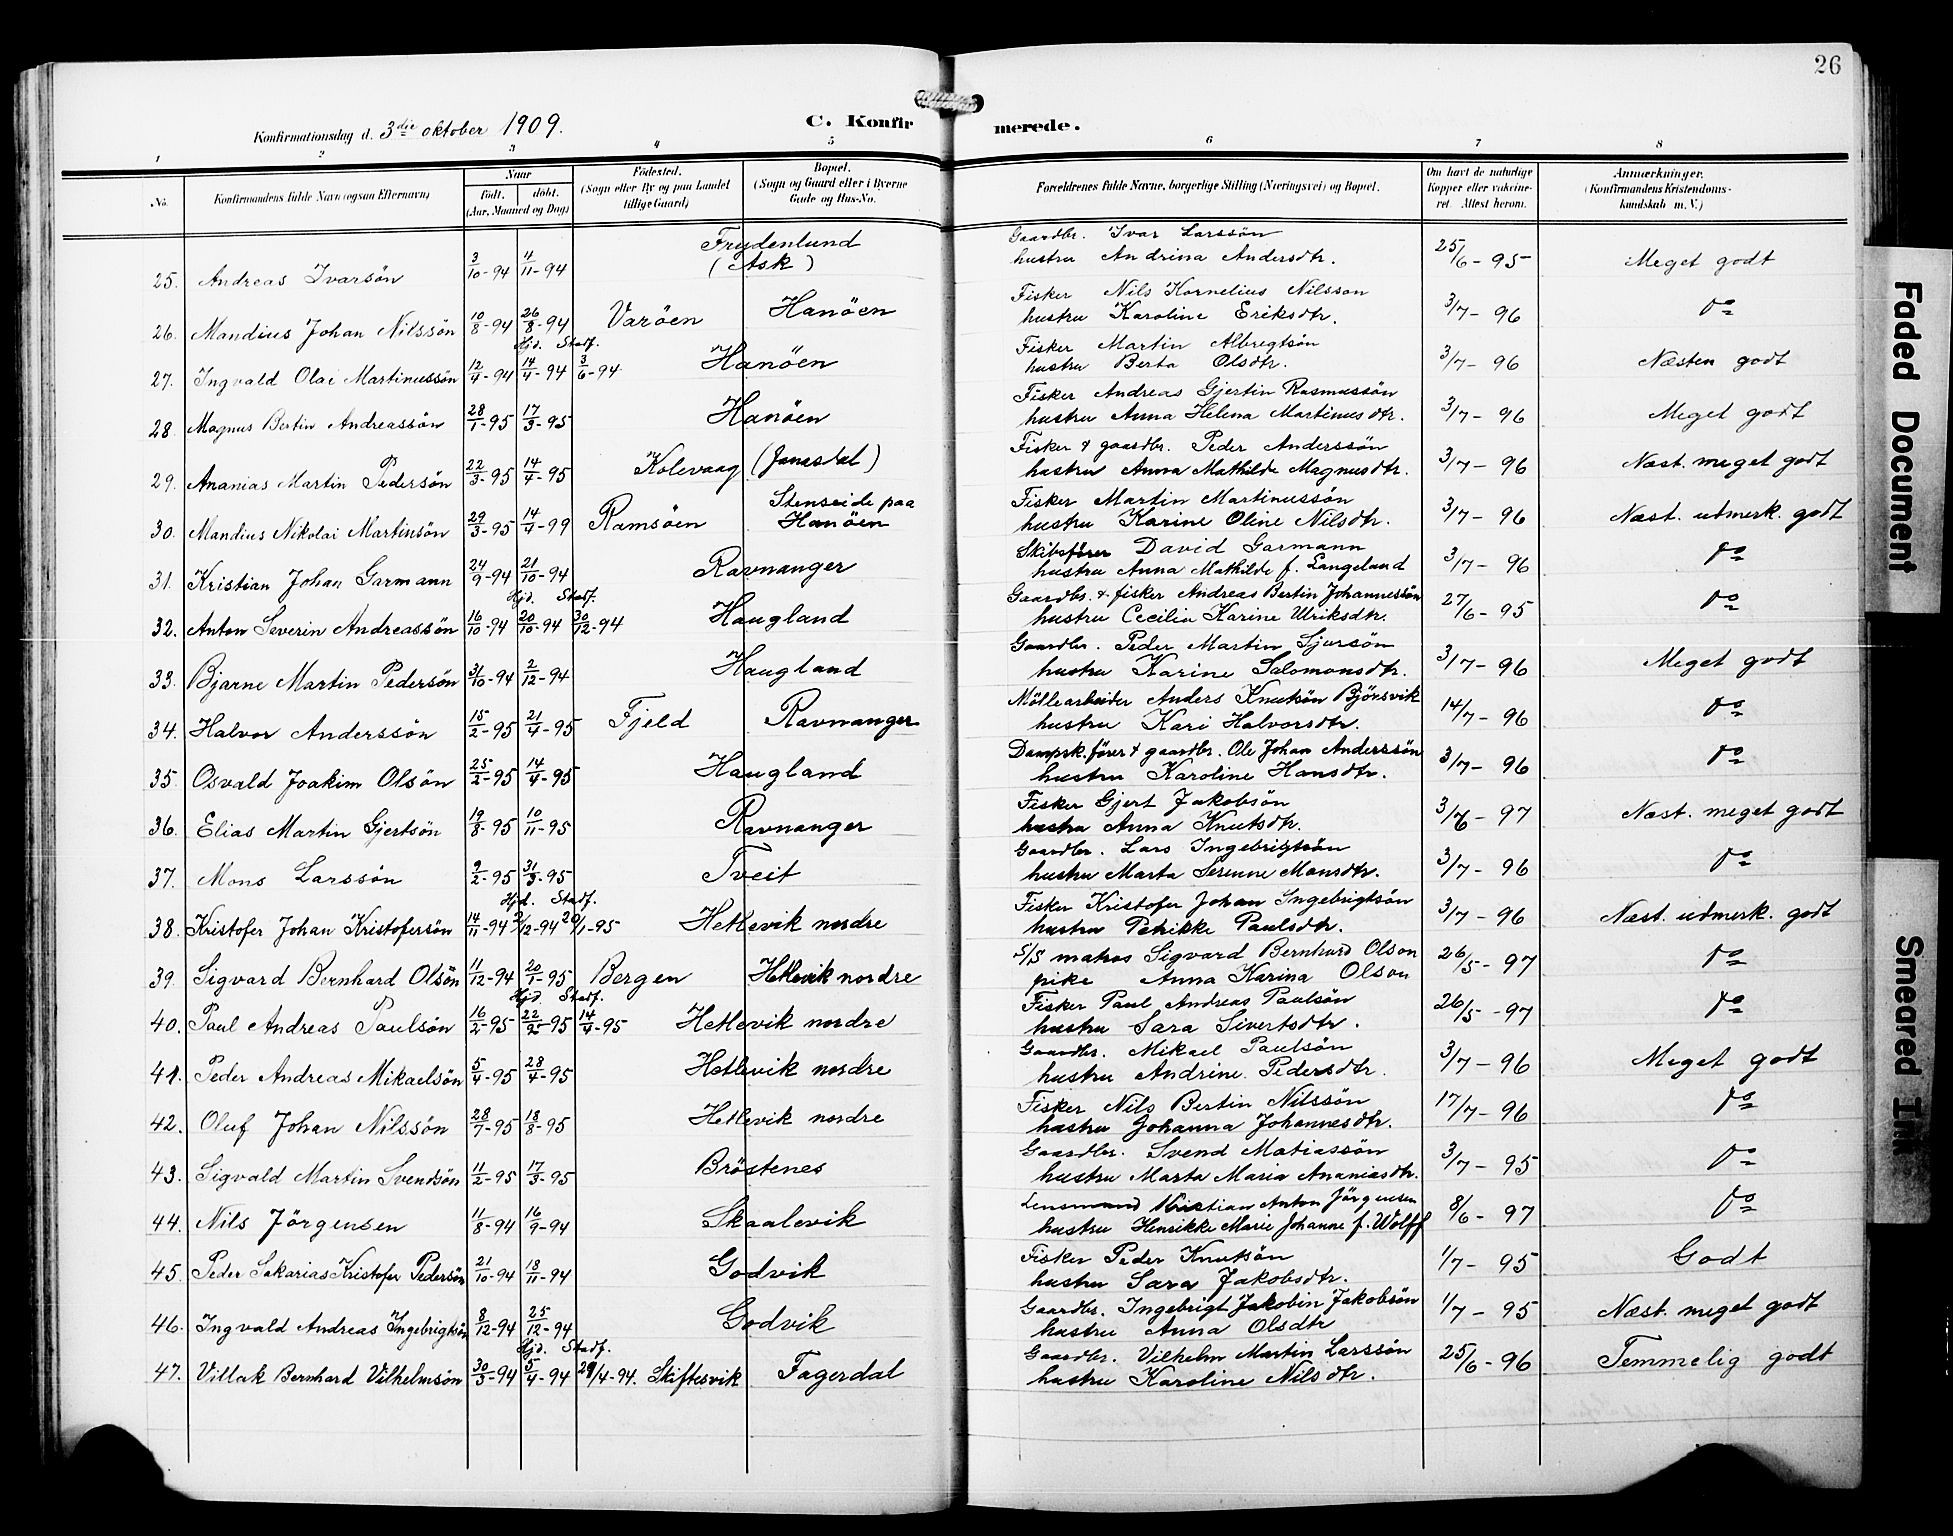 26
Konfirmationsdag d. 3die oktober 1909.
C. Konfirmerede.
1 2 3 4 5 6 7 8
No. Konfirmandens fulde Navn (ogsaa Efternavn) Naar født. døbt. (Aar, Maaned og Dag) Fødested. (Sogn eller By og paa Landet tillige Gaard) Bopæl. (Sogn og Gaard eller i Byerne Gade og Hus-No. Forældrenes fulde Navne, borgerlige Stilling (Næringsvei) og Bopæl. Om havt de naturlige Kopper eller vakcineret. Attest herom. Anmærkninger. (Konfirmandens Kristendomskundskab m. V.)
25. Andreas Ivarsön 3/10-94 4/11-94 Frydenlund (Ask) Gaardbr. Ivar Larssön 25/6-95 Meget godt
hustru Andrina Andersdtr.
26. Mandius Johan Nilssön 10/8-94 26/8-94 Varöen Hanöen Fisker Nils Kornelius Nilsson 3/7-96 do
hustru Karoline Eriksdtr.
27. Ingvald Olai Martinussön 12/4-94 Hjd. 14/4-94 Stadf. 3/6-94 Hanöen Fisker Martin Albregtsön 3/7-96 Næsten godt
hustru Berta Olsdtr.
28. Magnus Bertin Andreassön 28/1-95 17/3-95 Hanöen Fisker Andreas Gjertin Rasmussön 3/7-96 Meget godt
hustru Anna Helena Martinusdtr.
29. Ananias Martin Pedersön 22/3-95 14/4-95 Kolevaag (Janasdal) Fisker & gaardbr. Peder Anderssön 3/7-96 Næst. meget godt
hustru Anna Mathilde Magnusdtr.
30. Mandius Nikolai Martinsön 29/3-95 14/4-99 Ramsöen Stenseide paa Hanöen Fisker Martin Martinussön 3/7-96 Næst. udmerk. godt
hustru Karine Oline Nilsdtr.
31. Kristian Johan Garmann 24/9-94 21/10-94 Ravnanger Skibsfører David Garmann 3/7-96 do
hustru Anna Mathilde f. Langeland
32. Anton Severin Andreassön 16/10-94 Hjd. 20/10-94 Stadf. 30/12-94 Haugland Gaardbr. & fisker Andreas Bertin Johannessön 27/6-95 do
hustru Cecilia Karine Ulriksdtr.
33. Bjarne Martin Pedersön 31/10-94 2/12-94 Haugland Gaardbr. Peder Martin Sjursön 3/7-96 Meget godt
hustru Karine Salomonsdtr.
34. Halvor Anderssön 15/2-95 21/4-95 Fjeld Ravnanger Möllearbeider Anders Knutsön Björsvik 14/7-96 do
hustru Kari Halvorsdtr.
35. Osvald Joakim Olsön 25/2-95 14/4-95 Haugland Dampsk.fører & gaardbr. Ole Johan Anderssön 3/7-96 do
hustru Karoline Hansdtr.
36. Elias Martin Gjertsön 19/8-95 10/11-95 Ravnanger Fisker Gjert Jakobsön 3/6-97 Næst. meget godt
hustru Anna Knutsdtr.
37. Mons Larssön 9/2-95 31/3-95 Tveit Gaardbr. Lars Ingebrigtsön 3/7-96 do
hustru Marta Serenne Monsdtr.
38. Kristofer Johan Kristofersön 14/11-94 Hjd. 2/12-94 Stadf. 20/1-95 Hetlevik nordre Fisker Kristofer Johan Ingebrigtsön 3/7-96 Næst. udmerk. godt
hustru Petrikke Paulsdtr.
39. Sigvard Bernhard Olsön 11/12-94 20/1-95 Bergen Hetlevik nordre S/S matros Sigvard Bernhard Olson 26/5-97 do
pike Anna Karina Olson
40. Paul Andreas Paulsön 16/2-95 Hjd. 22/2-95 Stadf. 14/4-95 Hetlevik nordre Fisker Paul Andreas Paulsön 26/5-97 do
hustru Sara Sivertsdtr.
41. Peder Andreas Mikaelsön 5/4-95 28/4-95 Hetlevik nordre Gaardbr. Mikael Paulsön 3/7-96 Meget godt
hustru Andrine Pedersdtr.
42. Oluf Johan Nilssön 28/7-95 18/8-95 Hetlevik nordre Fisker Nils Bertin Nilssön 17/7-96 do
hustru Johanna Johannesdtr.
43. Sigvald Martin Svendsön 11/2-95 17/3-95 Bröstenes Gaardbr. Svend Matiassön 3/7-95 do
hustru Marta Maria Ananiasdtr.
44. Nils Jörgensen 11/8-94 16/9-94 Skaalevik Lensmand Kristian Anton Jörgensen 8/6-97 do
hustru Henrikke Marie Johanne f. Wolff
45. Peder Sakarias Kristofer Pedersön 21/10-94 18/11-94 Godvik Fisker Peder Knutsön 1/7-95 Godt
hustru Sara Jakobsdtr.
46. Ingvald Andreas Ingebrigtsön 8/12-94 25/12-94 Godvik Gaardbr. Ingebrigt Jakobin Jakobsön 1/7-95 Næst. meget godt
hustru Anna Olsdtr
47. Villak Bernhard Vilhelmsön 30/3-94 Hjd. 5/4-94 Stadf. 29/4-94. Skiftesvik Fagerdal Gaardbr. Vilhelm Martin Larssön 25/6-96 Temmelig godt
hustru Karoline Nilsdtr.
Faded Document
Smeared Ink